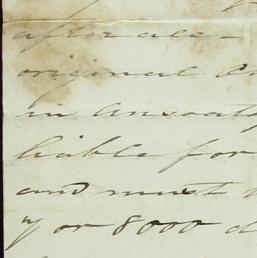 after all -
original
in
liable for
and must
7 or 8000 d